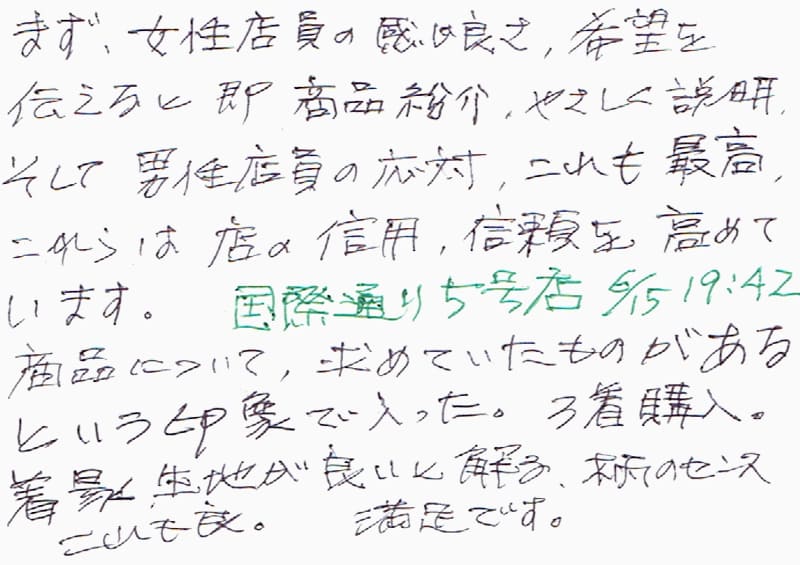 まず、女性店員の感じ良さ、希望を
伝えると即商品紹介、やさしく説明、
そして男性店員の応対、これも最高、
これらは店の信用、信頼を高めて
います。 国際通り5号店 6/15 19:42
商品について、求めていたものがある
という印象で入った。3着購入。
着易く生地が良いと解る、柄のセンス
これも良。 満足です。